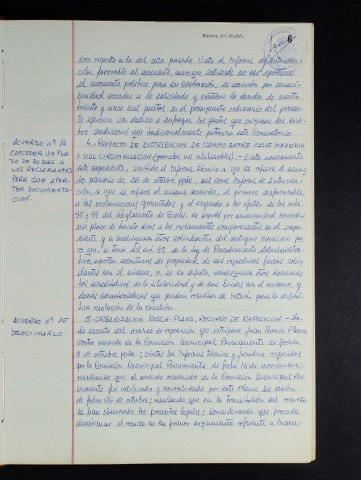 6
con respecto a la del año pasado. Visto el informe de Interven-
ción, favorable al aumento, aunque
el momento político para su aprobación, se acuerda por unani-
midad acceder a lo solicitado y
treinta y cinco mil pesetas en el presupuesto ordinario del presen-
te ejercicio con destino a sufragar los gastos que originen los
que tradicionalmente patrocina este Consistorio.
ACUERDO Nº 14
CONCEDER UN PLA-
ZO DE 20 DIAS A
LOS RECLAMANTES
PARA QUE APOR-
TEN DOCUMENTA-
CION.
4.- PROYECTO DE DISTRIBUCION DE CAMPO ENTRE
Y VIAS CIRCUMVALACION (parcelas no utilizables).- Visto nuevamente
este expediente, emitido el informe técnico a que se refiere el acuer-
do plenario de 26 de octubre ppdo., así como informe de Interven-
ción, a que se refiere el mismo acuerdo, el primero
a las reclamaciones presentadas y el segundo a los efectos de los arts.
95 y 99 del Reglamento de Bienes, se acordó por unanimidad conceder
un plazo de veinte días a los reclamantes comparecientes en el expe-
diente y a cualesquiera otros colindantes del antiguo camino
a tenor del art. 93 de la Ley de Procedimiento Administra-
tivo, aporten escrituras de propiedad, de sus respectivas fincas colin-
dantes con el mismo, o, en su defecto, cualesquiera otros documen-
tos acreditativos de la titularidad y de sus lindes con el mismo, y
demás características que puedan resultar de interés para la defini-
tiva resolución de la cuestión.
ACUERDO Nº 15
DESESTIMARLO
5.- URBANIZACION PLANA, RECURSO DE REPOSICION.- Da-
da cuenta del recurso de reposición que interpone Juan Plana
contra acuerdo de la Comisión Municipal Permanente de fecha
5 de octubre ppdo.; vistos los informes técnico y jurídico
por la Comisión Municipal Permanente de fecha 16 de noviembre;
resultando que el acuerdo recurrido de la Comisión Municipal Per-
manente fué ratificado y convalidado por este Pleno en sesión
de fecha 26 de octubre; resultando que en la tramitación del recurso
se han observado los preceptos legales; considerando que procede
desestimar el recurso en su primer argumento referente a